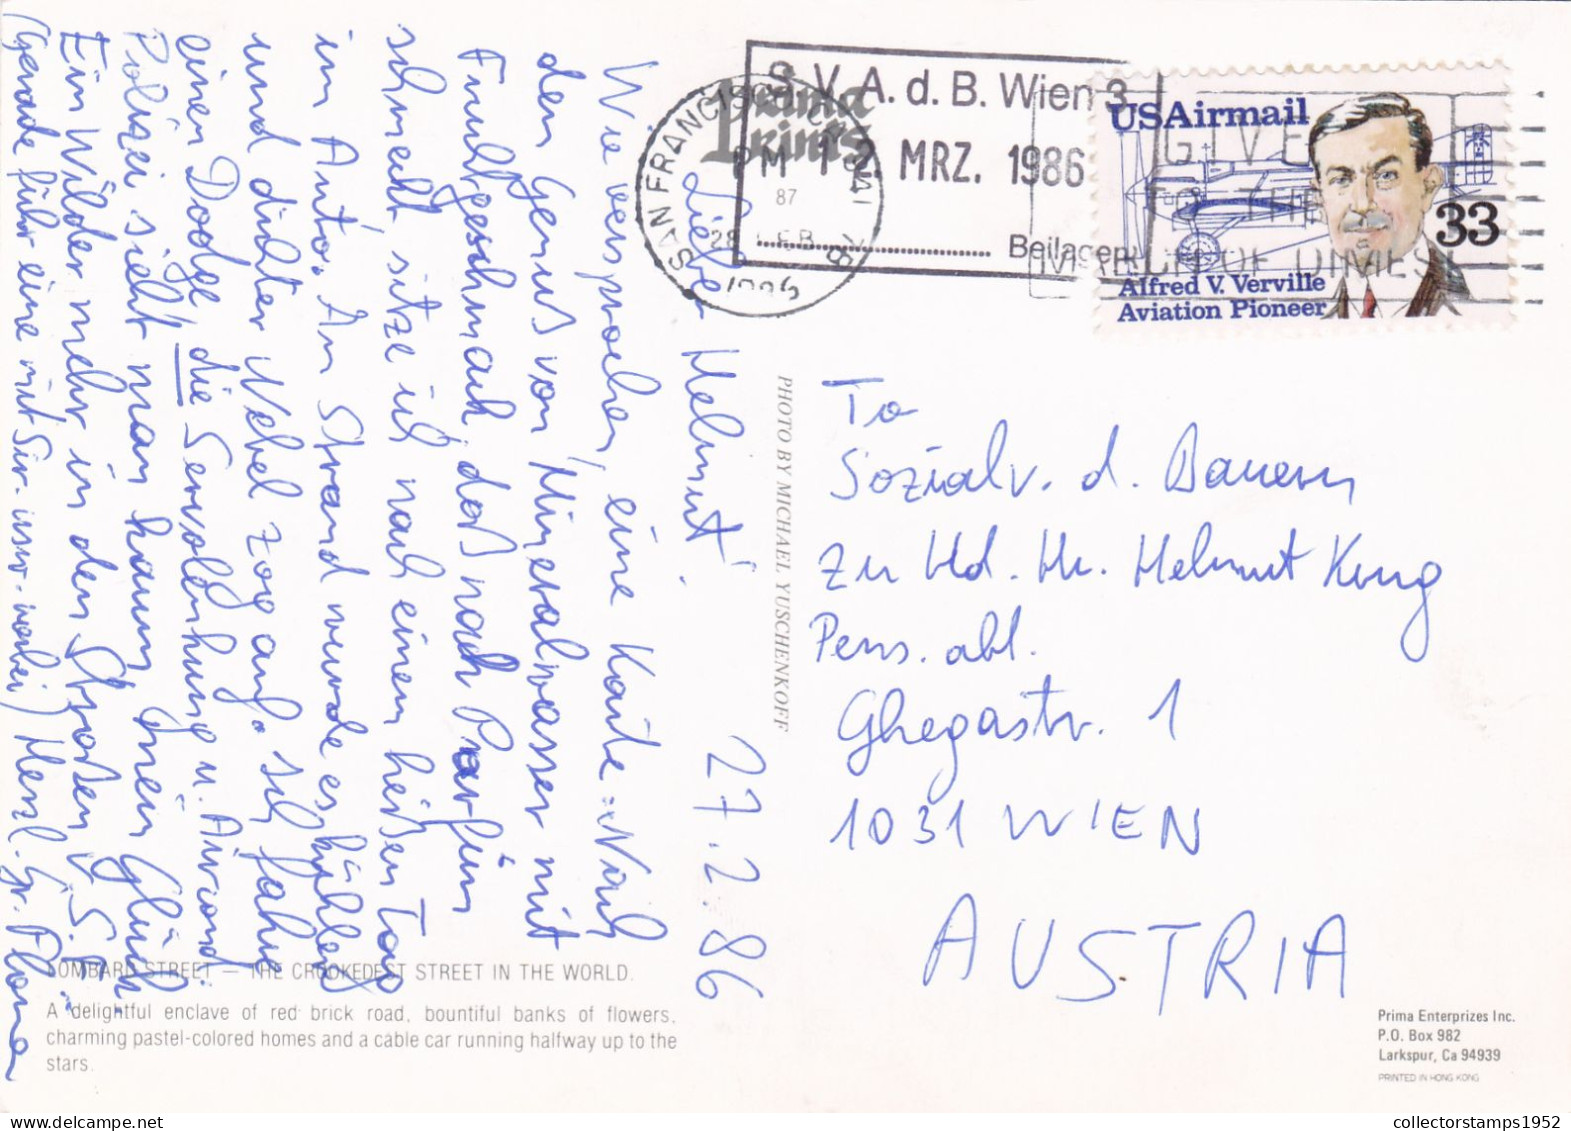 27.2.86
Lieber Helmut!
Wie versprochen, eine Karte. Nach
dem Genuß von Mineralwasser mit
Fruchtgeschmack, das nach Parfüm
schmeckt, sitze ich nach einem heißen Tag
im Auto. Am Strand wurde es kühler
und dichter Nebel zog auf. Ich fahre
einen Dodge, die Servolenkung u. Aircond.
Polizei sieht man kaum, mein Glück.
Ein Wilder mehr in den Straßen v. S.F.
(Gerade fuhr eine mit Sir. vorbei) Herzl. Gr.
LOMBARD STREET — THE CROOKEDEST STREET IN THE WORLD.
A delightful enclave of red brick road, bountiful banks of flowers,
charming pastel-colored homes and a cable car running halfway up to the
stars.
PHOTO BY MICHAEL YUSCHENKOFF
Prima
Prints
S. V. A. d. B. Wien 3
12. MRZ. 1986
Beilagen
SAN FRANCISCO
PM
87
28 FEB
1986
GIVE
TO THE
MARCH OF DIMES
USAirmail
33
Alfred V. Verville
Aviation Pioneer
To
Sozialv. d. Bauern
zu Hd. Hr. Helmut King
Pens. abt.
Ghegastr. 1
1031 WIEN
AUSTRIA
Prima Enterprizes Inc.
P.O. Box 982
Larkspur, Ca 94939
PRINTED IN HONG KONG
collectorstamps1952